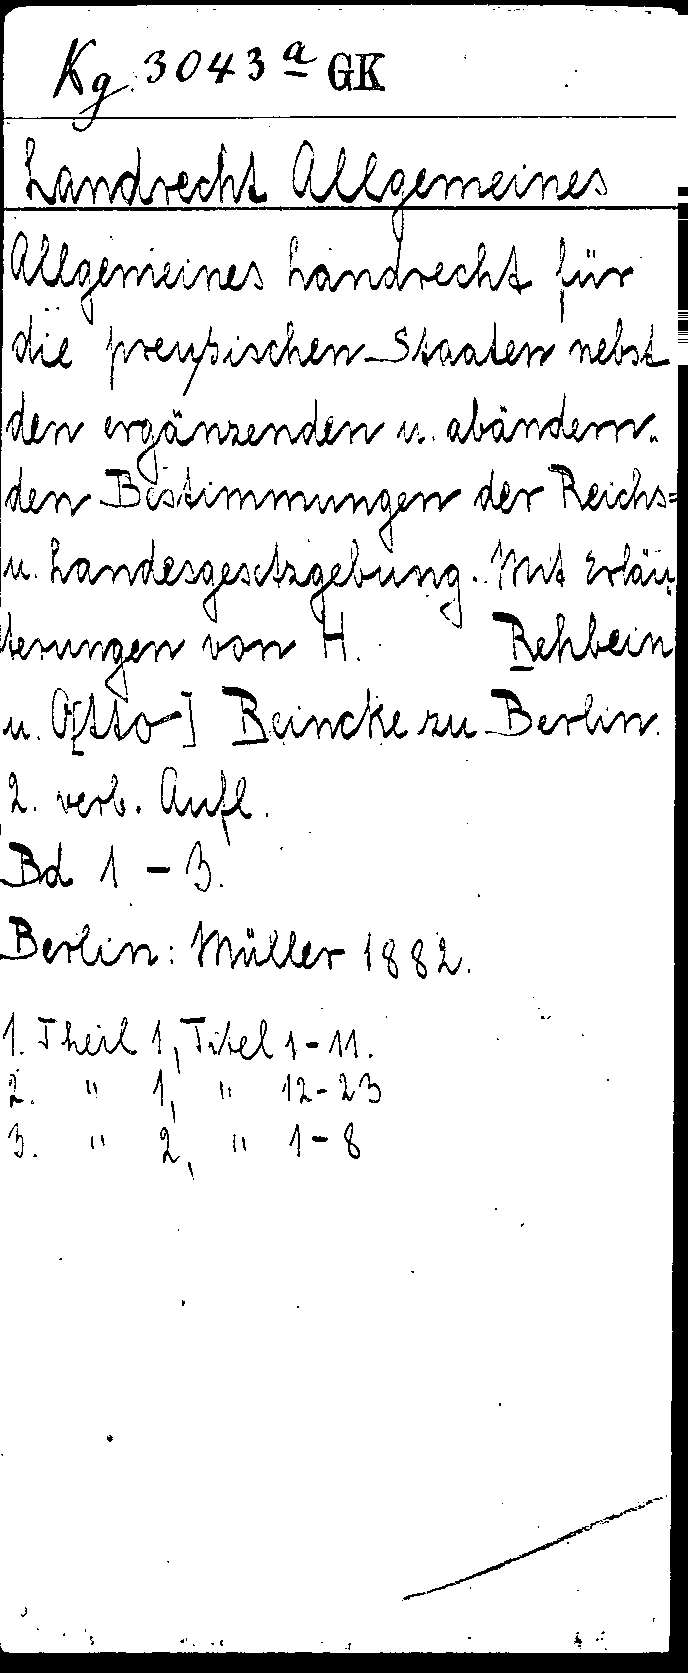 Kg 3043 a GK
Landrecht Allgemeines
Allgemeines Landrecht für
die preußischen Staaten nebst
den ergänzenden u. abändern-
den Bestimmungen der Reichs=
u. Landesgesetzgebung. Mit Erläu-
terungen von H. Rehbein
u. O[tto] Reincke zu Berlin.
2. verb. Aufl.
Bd 1 - 3.
Berlin: Müller 1882.
1. Theil 1, Titel 1-11.
2. " 1, " 12-23
3. " 2, " 1-8